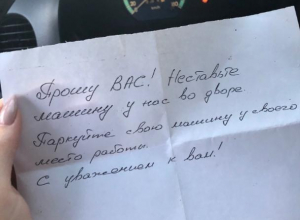 Прошу ВАС! Неставьте
машину у нас во дворе
Паркуйте свою машину у своего
место работы.
С уважением к вам!